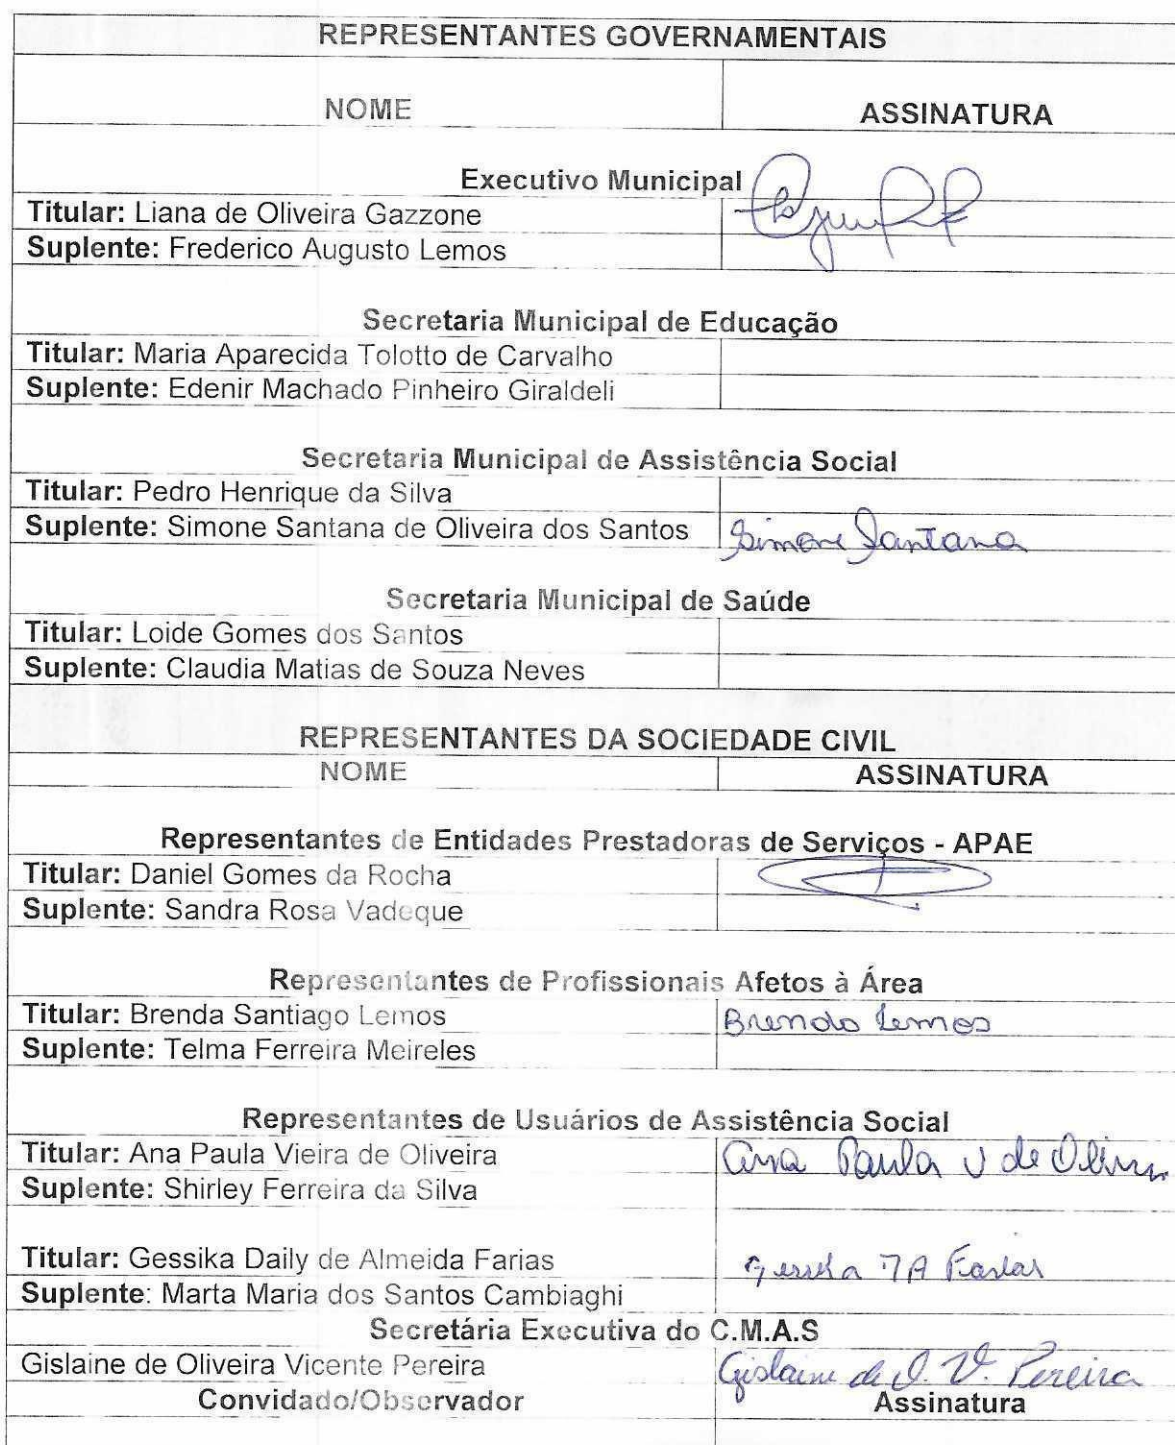 REPRESENTANTES GOVERNAMENTAIS
NOME ASSINATURA
Executivo Municipal
Titular: Liana de Oliveira Gazzone
Suplente: Frederico Augusto Lemos
Secretaria Municipal de Educação
Titular: Maria Aparecida Tolotto de Carvalho
Suplente: Edenir Machado Pinheiro Giraldeli
Secretaria Municipal de Assistência Social
Titular: Pedro Henrique da Silva
Suplente: Simone Santana de Oliveira dos Santos Simone Santana
Secretaria Municipal de Saúde
Titular: Loide Gomes dos Santos
Suplente: Claudia Matias de Souza Neves
REPRESENTANTES DA SOCIEDADE CIVIL
NOME ASSINATURA
Representantes de Entidades Prestadoras de Serviços - APAE
Titular: Daniel Gomes da Rocha
Suplente: Sandra Rosa Vadeque
Representantes de Profissionais Afetos à Área
Titular: Brenda Santiago Lemos Brenda Lemos
Suplente: Telma Ferreira Meireles
Representantes de Usuários de Assistência Social
Titular: Ana Paula Vieira de Oliveira Ana Paula V de Oliveira
Suplente: Shirley Ferreira da Silva
Titular: Gessika Daily de Almeida Farias Gessika D A Farias
Suplente: Marta Maria dos Santos Cambiaghi
Secretária Executiva do C.M.A.S
Gislaine de Oliveira Vicente Pereira Gislaine de O. V. Pereira
Convidado/Observador Assinatura